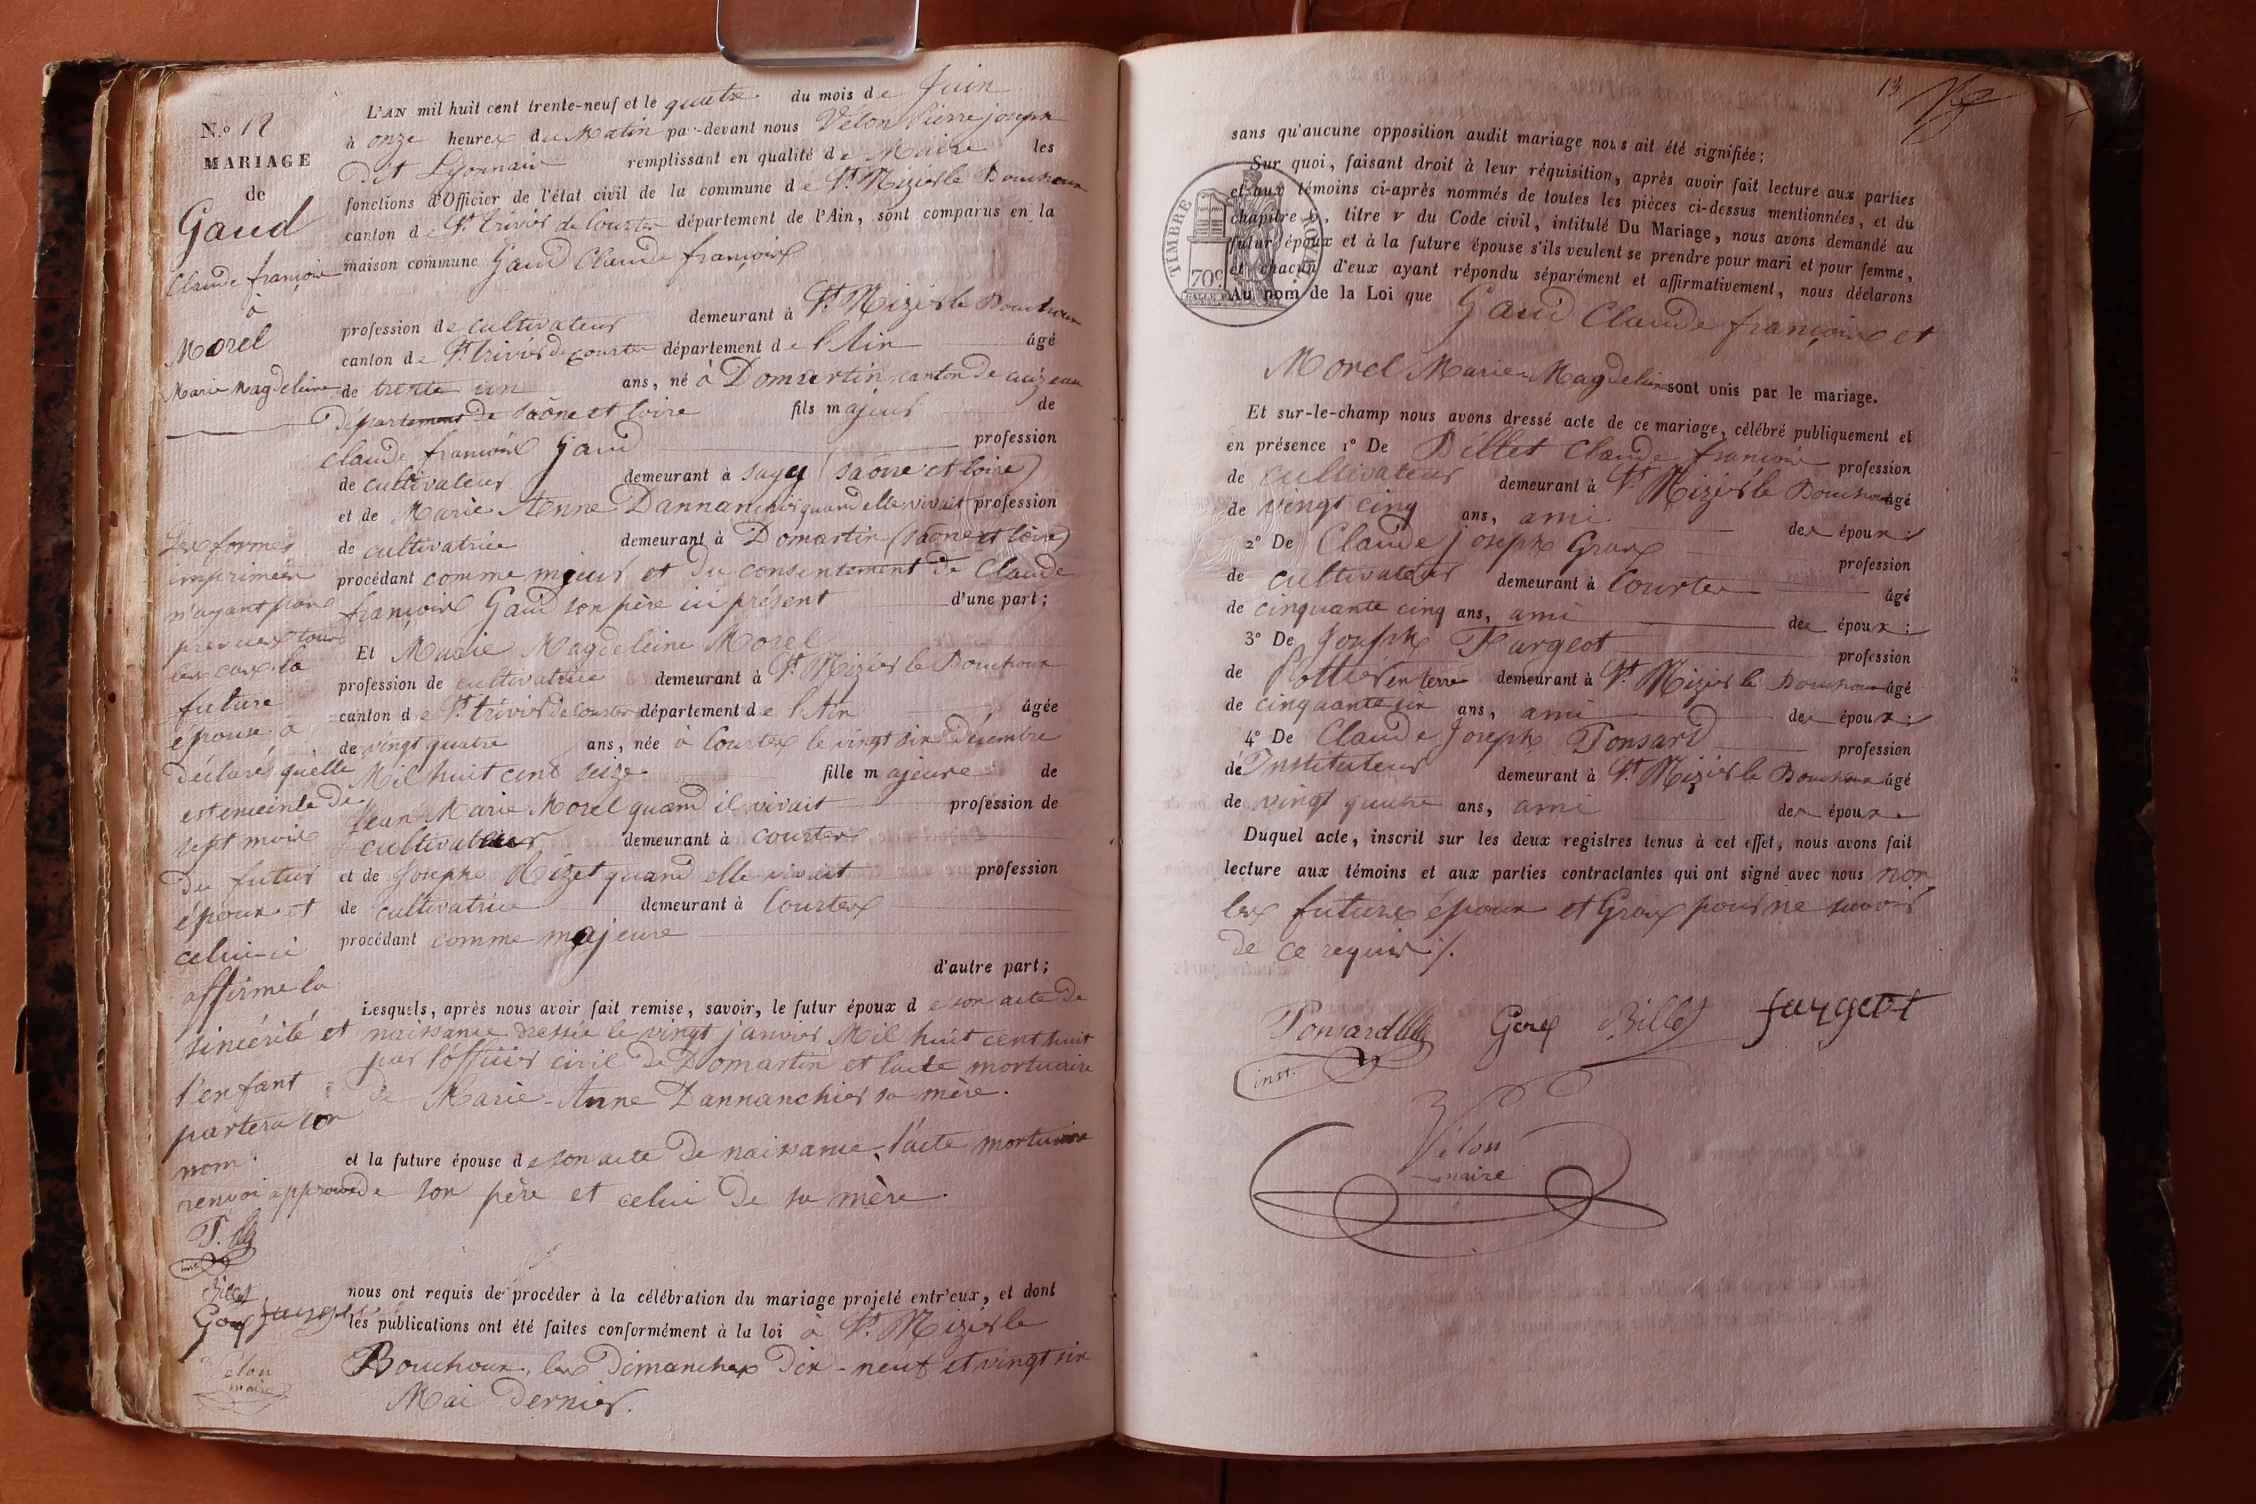 N.º 12
MARIAGE
de
Gaud
Claude françois
à
Morel
Marie Magdeleine
Les formes
imprimées
n'ayant pas
prevues tous
les cas la
future
épouse a
déclaré quèlle
est enceinte de
sept mois
du futur
époux et
celui-ci
affirme la
sincérité et
l'enfant
portera son
nom.
renvoi approuvé
P.
inst.
Billet
Gros fargeot
Vélon
maire
L'AN mil huit cent trente-neuf et le quatre du mois de Juin
à onze heures du Matin par-devant nous Vélon Pierre joseph
Dit Lyonnais remplissant en qualité de Maire les
fonctions d'Officier de l'état civil de la commune de St. Nizier le Bouchoux
canton de St. trivier de Courtes département de l'Ain, sont comparus en la
maison commune Gaud Claude françois
profession de cultivateur demeurant à St. Nizier le Bouchoux
canton de St. trivier de courtes département de l'Ain âgé
de trente un ans, né à Domartin canton de cuizeau
département de Saône et loire fils majeur de
claude françois Gaud profession
de cultivateur demeurant à sagy (saône et loire)
et de Marie Anne Dannanchier quand elle vivait profession
de cultivatrice demeurant à Domartin (saône et loire)
procédant comme majeur et du consentement de Claude
françois Gaud son père ici présent d'une part;
Et Marie Magdeleine Morel
profession de cultivatrice demeurant à St. Nizier le Bouchoux
canton de St. trivier de Courtes département de l'Ain âgée
de vingt quatre ans, née à Courtes le vingt six Décembre
Mil huit cent seize fille majeure de
Jean Marie Morel quand il vivait profession de
cultivateur demeurant à courtes
et de Josephe Nizet quand elle vivait profession
de cultivatrice demeurant à Courtes
procédant comme majeure
d'autre part;
Lesquels, après nous avoir fait remise, savoir, le futur époux de son acte de
naissance dressée le vingt janvier Mil huit cent huit
par l'officier civil de Domartin et l'acte mortuaire
de Marie-Anne Dannanchier sa mère.
et la future épouse de son acte de naissance, l'acte mortuaire
de son père et celui de sa mère.
nous ont requis de procéder à la célébration du mariage projeté entr'eux, et dont
les publications ont été faites conformément à la loi à St. Nizier le
Bouchoux, les Dimanches dix-neuf et vingt six
Mai dernier.
13
sans qu'aucune opposition audit mariage nous ait été signifiée;
Sur quoi, faisant droit à leur réquisition, après avoir fait lecture aux parties
et aux témoins ci-après nommés de toutes les pièces ci-dessus mentionnées, et du
chapitre 6, titre v du Code civil, intitulé Du Mariage, nous avons demandé au
futur époux et à la future épouse s'ils veulent se prendre pour mari et pour femme,
et chacun d'eux ayant répondu séparément et affirmativement, nous déclarons
Au nom de la Loi que Gaud Claude françois et
TIMBRE ROYAL
70c.
Morel Marie Magdeleine sont unis par le mariage.
Et sur-le-champ nous avons dressé acte de ce mariage, célébré publiquement et
en présence 1º De Billet Claude françois profession
de cultivateur demeurant à St. Nizier le Bouchoux âgé
de vingt cinq ans, ami des époux;
2º De Claude joseph Gros profession
de cultivateur demeurant à Courtes âgé
de cinquante cinq ans, ami des époux;
3º De Joseph Fargeot profession
de Pottier en terre demeurant à St. Nizier le Bouchoux âgé
de cinquante un ans, ami des époux;
4º De Claude Joseph Ponsard profession
de Instituteur demeurant à St. Nizier le Bouchoux âgé
de vingt quatre ans, ami des époux.
Duquel acte, inscrit sur les deux registres tenus à cet effet, nous avons fait
lecture aux témoins et aux parties contractantes qui ont signé avec nous non
les futurs époux et Gros pour ne savoir
de ce requis /.
Ponsard Gros Billet fargeot
inst.
Vélon
maire